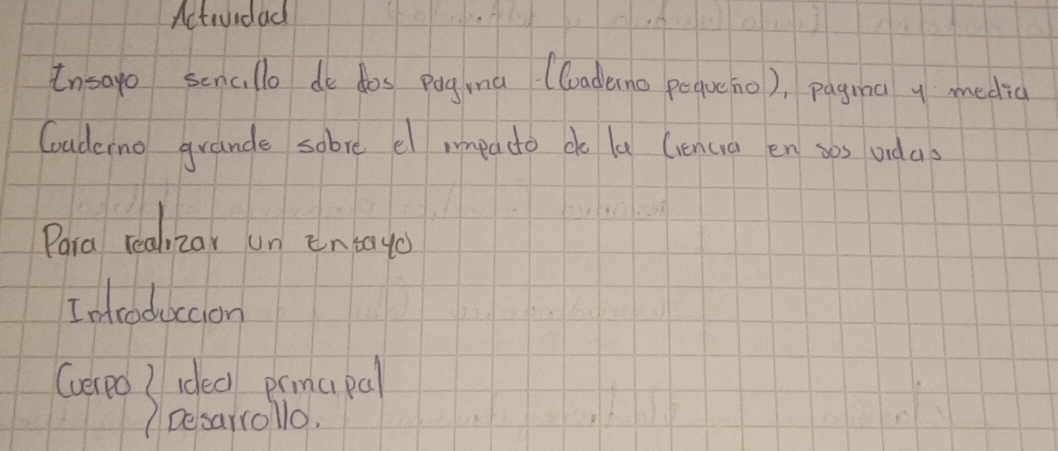 Actividad
Ensayo sencillo de dos pagina (Cuaderno pequeño), pagina y media
Cuaderno grande sobre el impacto de la Ciencia en sus vidas
Para realizar un Ensayo
Introduccion
Cuerpo } idea principal
} Desarrollo.